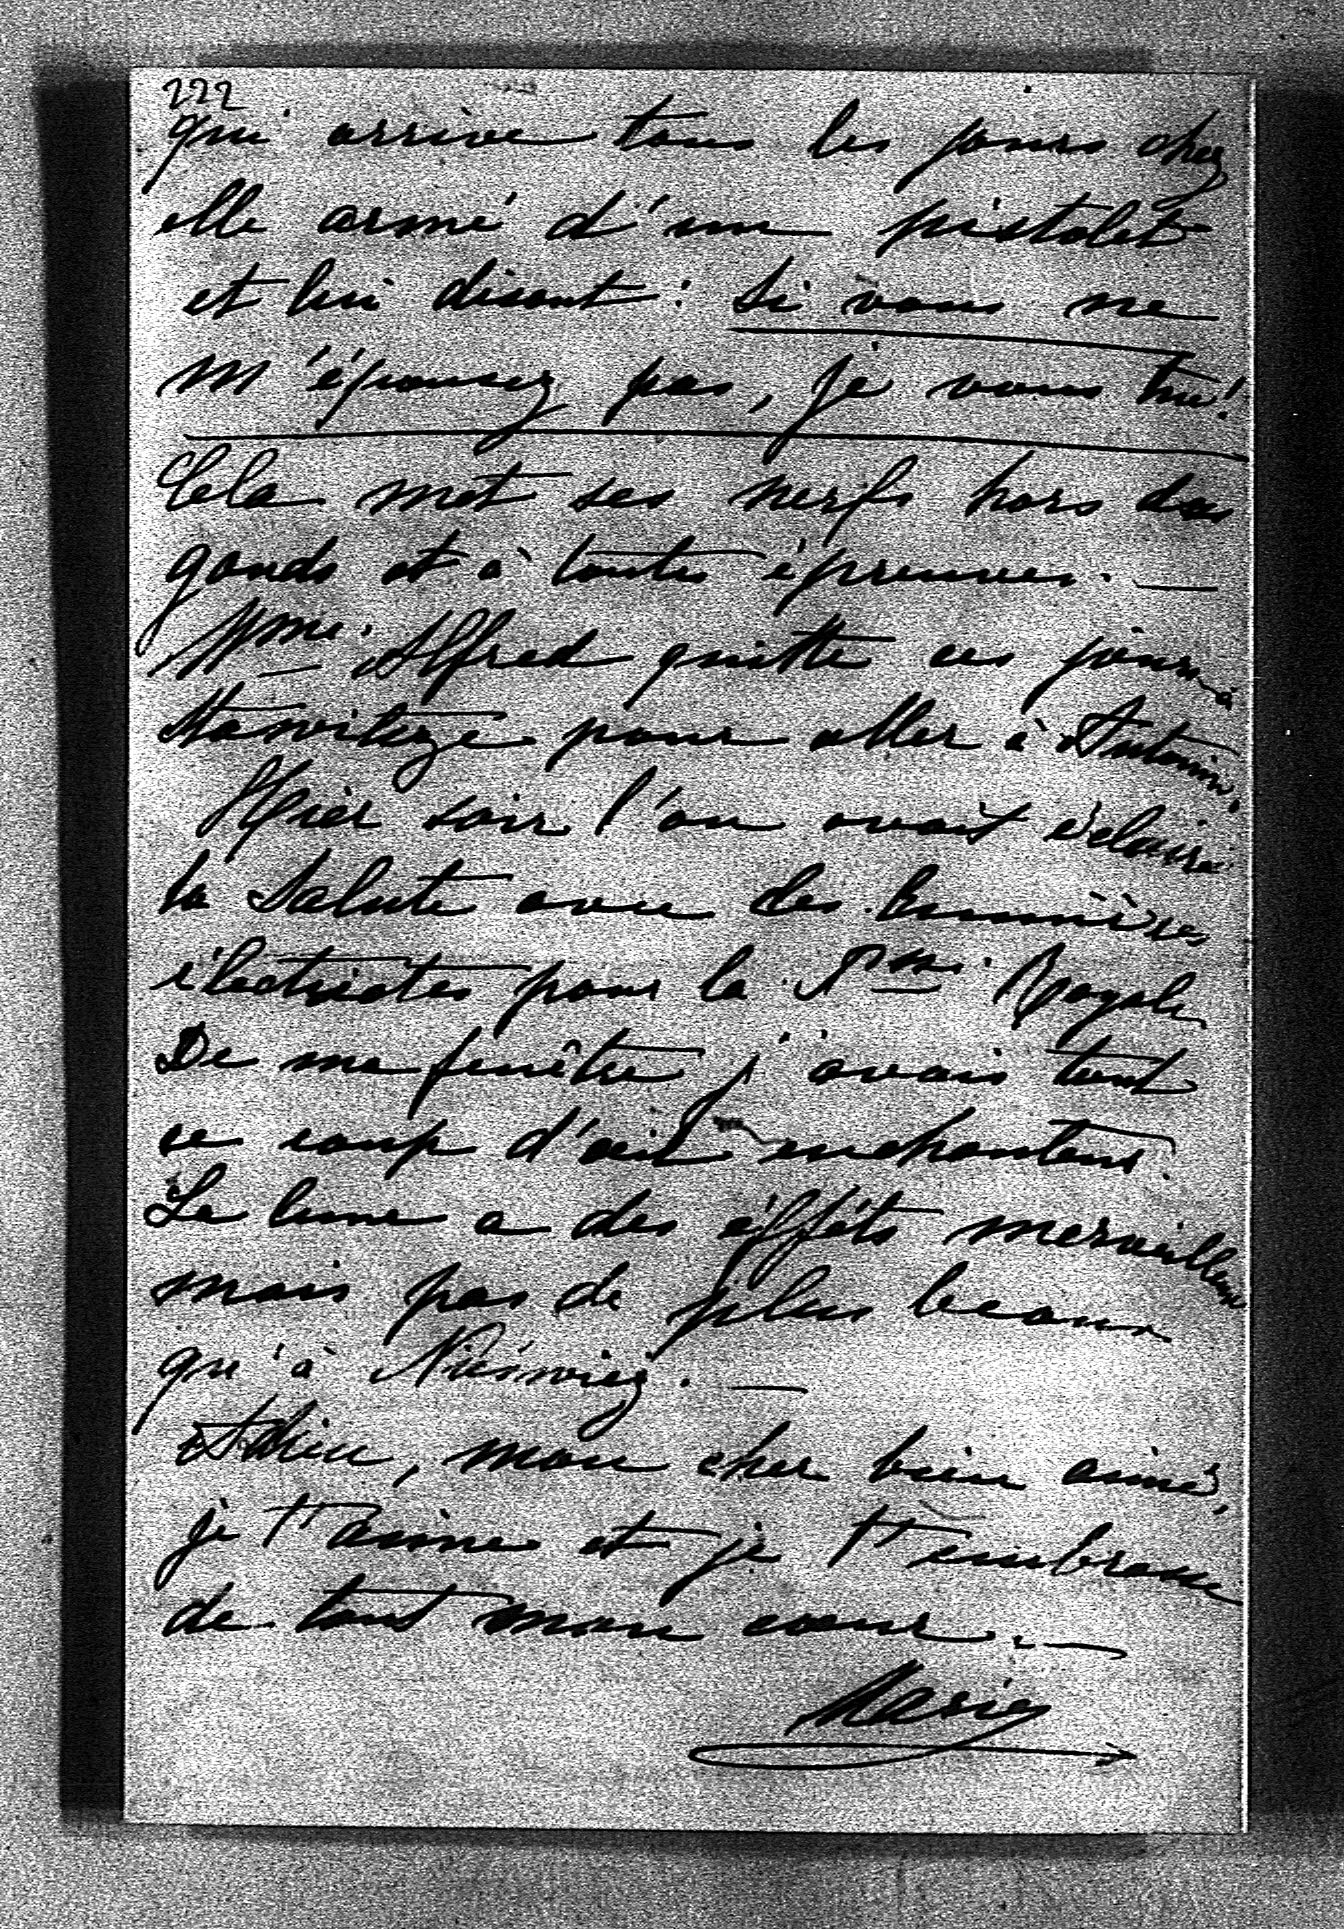 222
qui arrive tous les jours chez
elle armé d'un pistolet
et lui disant: Si vous ne
m'épousez pas, je vous tue!
Cela met ses nerfs hors des
gonds et à toutes épreuves. —
Mme. Alfred quitte ces jours-ci
pour aller à Antonin.
Hier soir l'on avait éclairé
la Salute avec des lumières
électriques pour la Royale
De ma fenêtre j'avais tout
ce coup d'œil enchanteur.
La lune a des éffêts merveilleux
mais pas de plus beaux
qu'à Nieśwież. —
Adieu, mon cher bien aimé,
je t'aime et je t'embrasse
de tout mon cœur. —
Marie